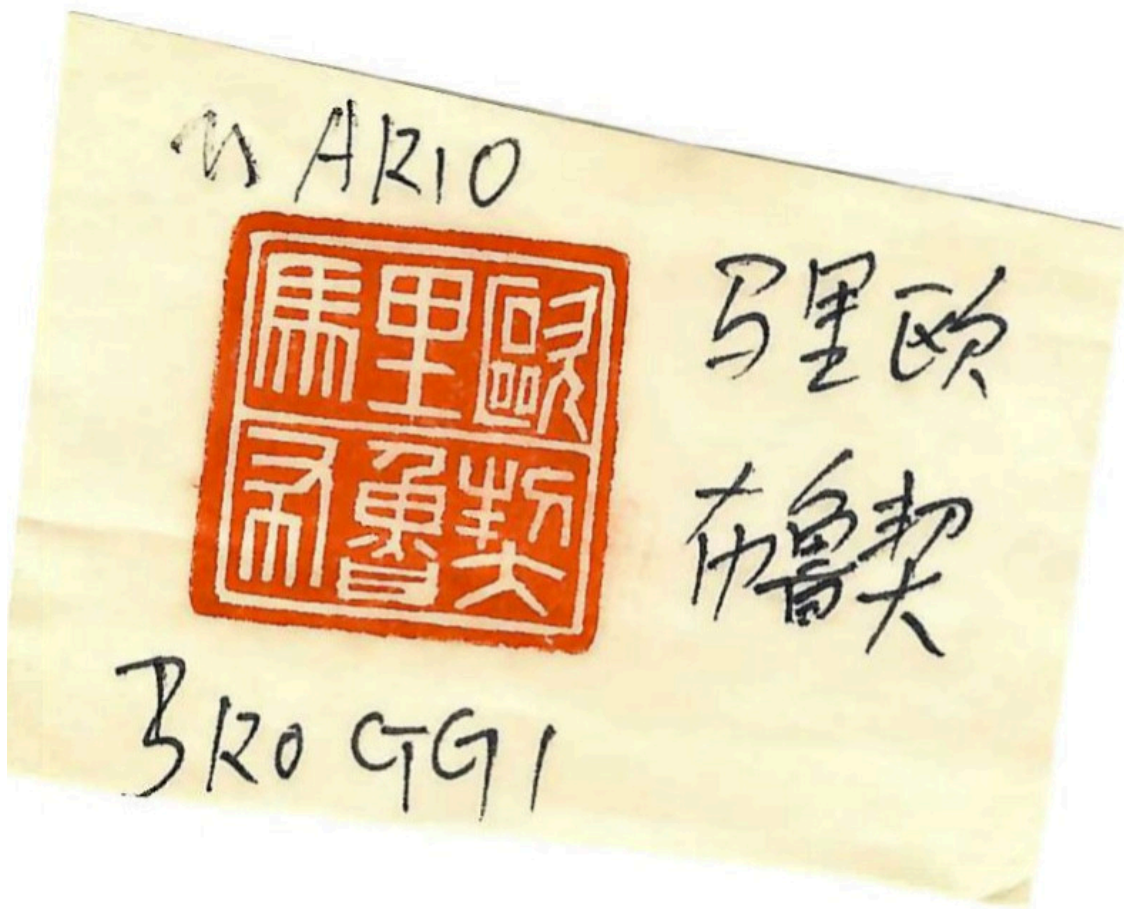 MARIO
馬里歐
布魯契
马里欧
布鲁契
BROGGI